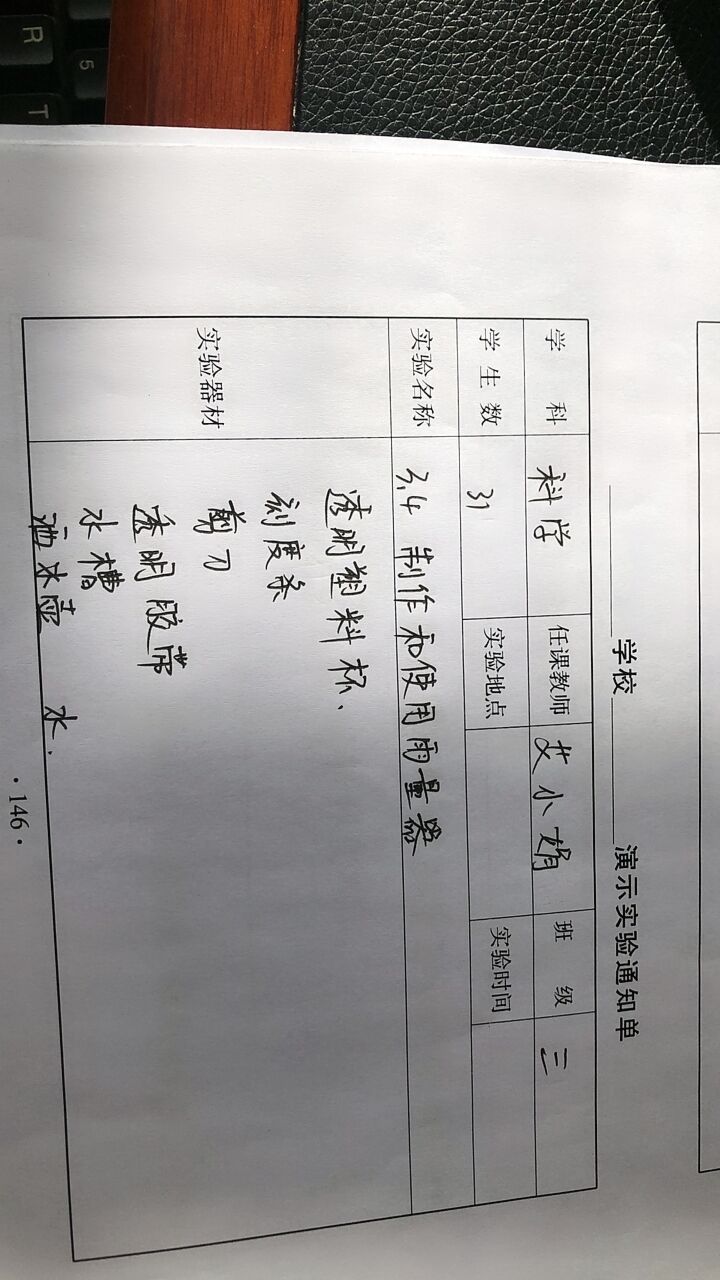 ______学校______演示实验通知单
学 科 科学 任课教师 艾小娟 班 级 三
学生数 31 实验地点 实验时间
实验名称 3.4 制作和使用雨量器
实验器材 透明塑料杯、
刻度条
剪刀
透明胶带
水槽
洒水壶 水.
·146·
R
5
T